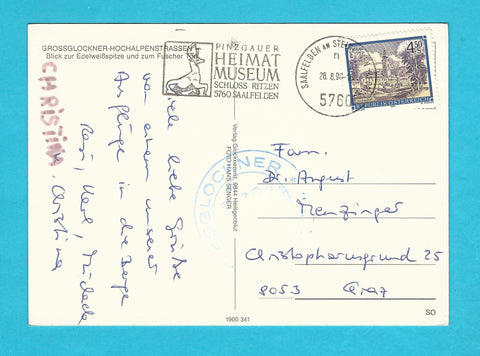 GROSSGLOCKNER-HOCHALPENSTRASSEN
Blick zur Edelweißspitze und zum Fuscher Törl
PINZGAUER
HEIMAT
MUSEUM
SCHLOSS RITZEN
5760 SAALFELDEN
SAALFELDEN AM STEI
n
28.8.90
5760
4.50
REPUBLIK ÖSTERREICH
CHRISTINA
Viele liebe Grüße
von einem unserer
Ausflüge in die Berge
Karl, Michaela
u. Christina
Verlag Glocknerwirt, 9844 Heiligenblut
FOTO HANS SENGER
GLOCKNER
Fam.
Dr. August
Menzinger
Christophorusgrund 25
8053 Graz
1900 341
SO